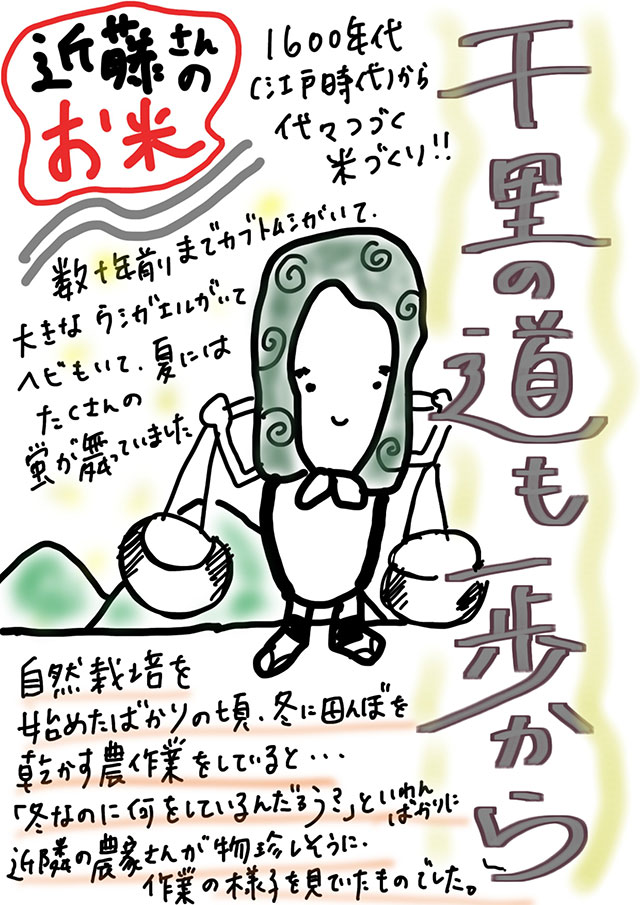 近藤さんの
お米
1600年代
(江戸時代)から
代々つづく
米づくり!!
千里の道も一歩から
数十年前りまでカブトムシがいて.
大きなウシガエルがいて
ヘビもいて.夏には
たくさんの
蛍が舞っていました
自然栽培を
始めたばかりの頃.冬に田んぼを
乾かす農作業をしていると・・・
「冬なのに何をしているんだろう?」といわんばかりに
近隣の農家さんが物珍しそうに.
作業の様子を見ていたものでした。